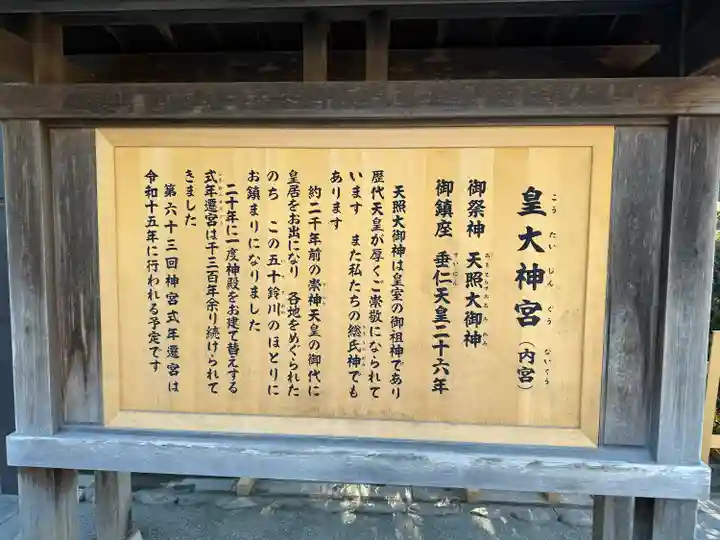 皇大神宮（内宮）
こうたいじんぐう ないくう
御祭神 天照大御神
あまてらすおおみかみ
御鎮座 垂仁天皇二十六年
すいにん
天照大御神は皇室の御祖神であり
歴代天皇が厚くご崇敬になられて
います また私たちの総氏神でも
あります
約二千年前の崇神天皇の御代に
皇居をお出になり 各地をめぐられた
のち この五十鈴川のほとりに
お鎮まりになりました
二十年に一度神殿をお建て替えする
式年遷宮は千三百年余り続けられて
きました
第六十三回神宮式年遷宮は
令和十五年に行われる予定です